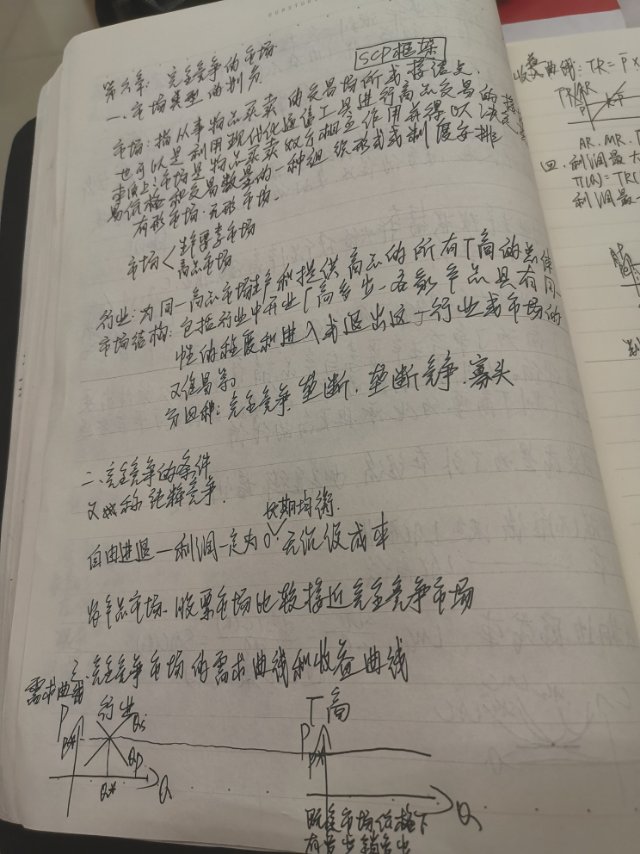 第六章：完全竞争的市场
SCP框架
一、市场类型的划分
市场：指从事物品买卖的交易场所或接洽点.
也可以是利用现代化通信工具进行商品交易的接洽点
本质上：市场是物品买卖双方相互作用并得以决定
易价格和交易数量的一种组织形式或制度安排
有形市场.无形市场.
市场<生产要素市场
商品市场
行业：为同一商品市场生产和提供商品的所有厂商的总体
市场结构：包括行业中开业厂商多少.各家产品具有同
性的程度和进入或退出这一行业或市场的
又
分四种：完全竞争.垄断.垄断竞争.寡头
二、完全竞争的条件
又被称纯粹竞争.
长期均衡.
自由进退—利润一定为0 无沉没成本
农产品市场.股票市场比较接近完全竞争市场
三、完全竞争市场的需求曲线和收益曲线
需求曲线
行业 厂商
P Qs P
P* QD P*
Q* Q Q
既定市场价格下
有多少销多少
收益曲线：TR=P×
P AR
AR.MR.
四.利润最大
π(Q)=TR(
利润最